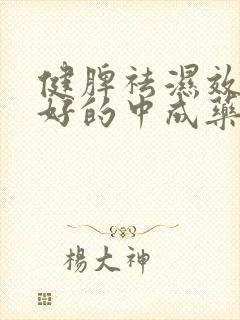 健脾祛濕效
好的中成藥
楊大神